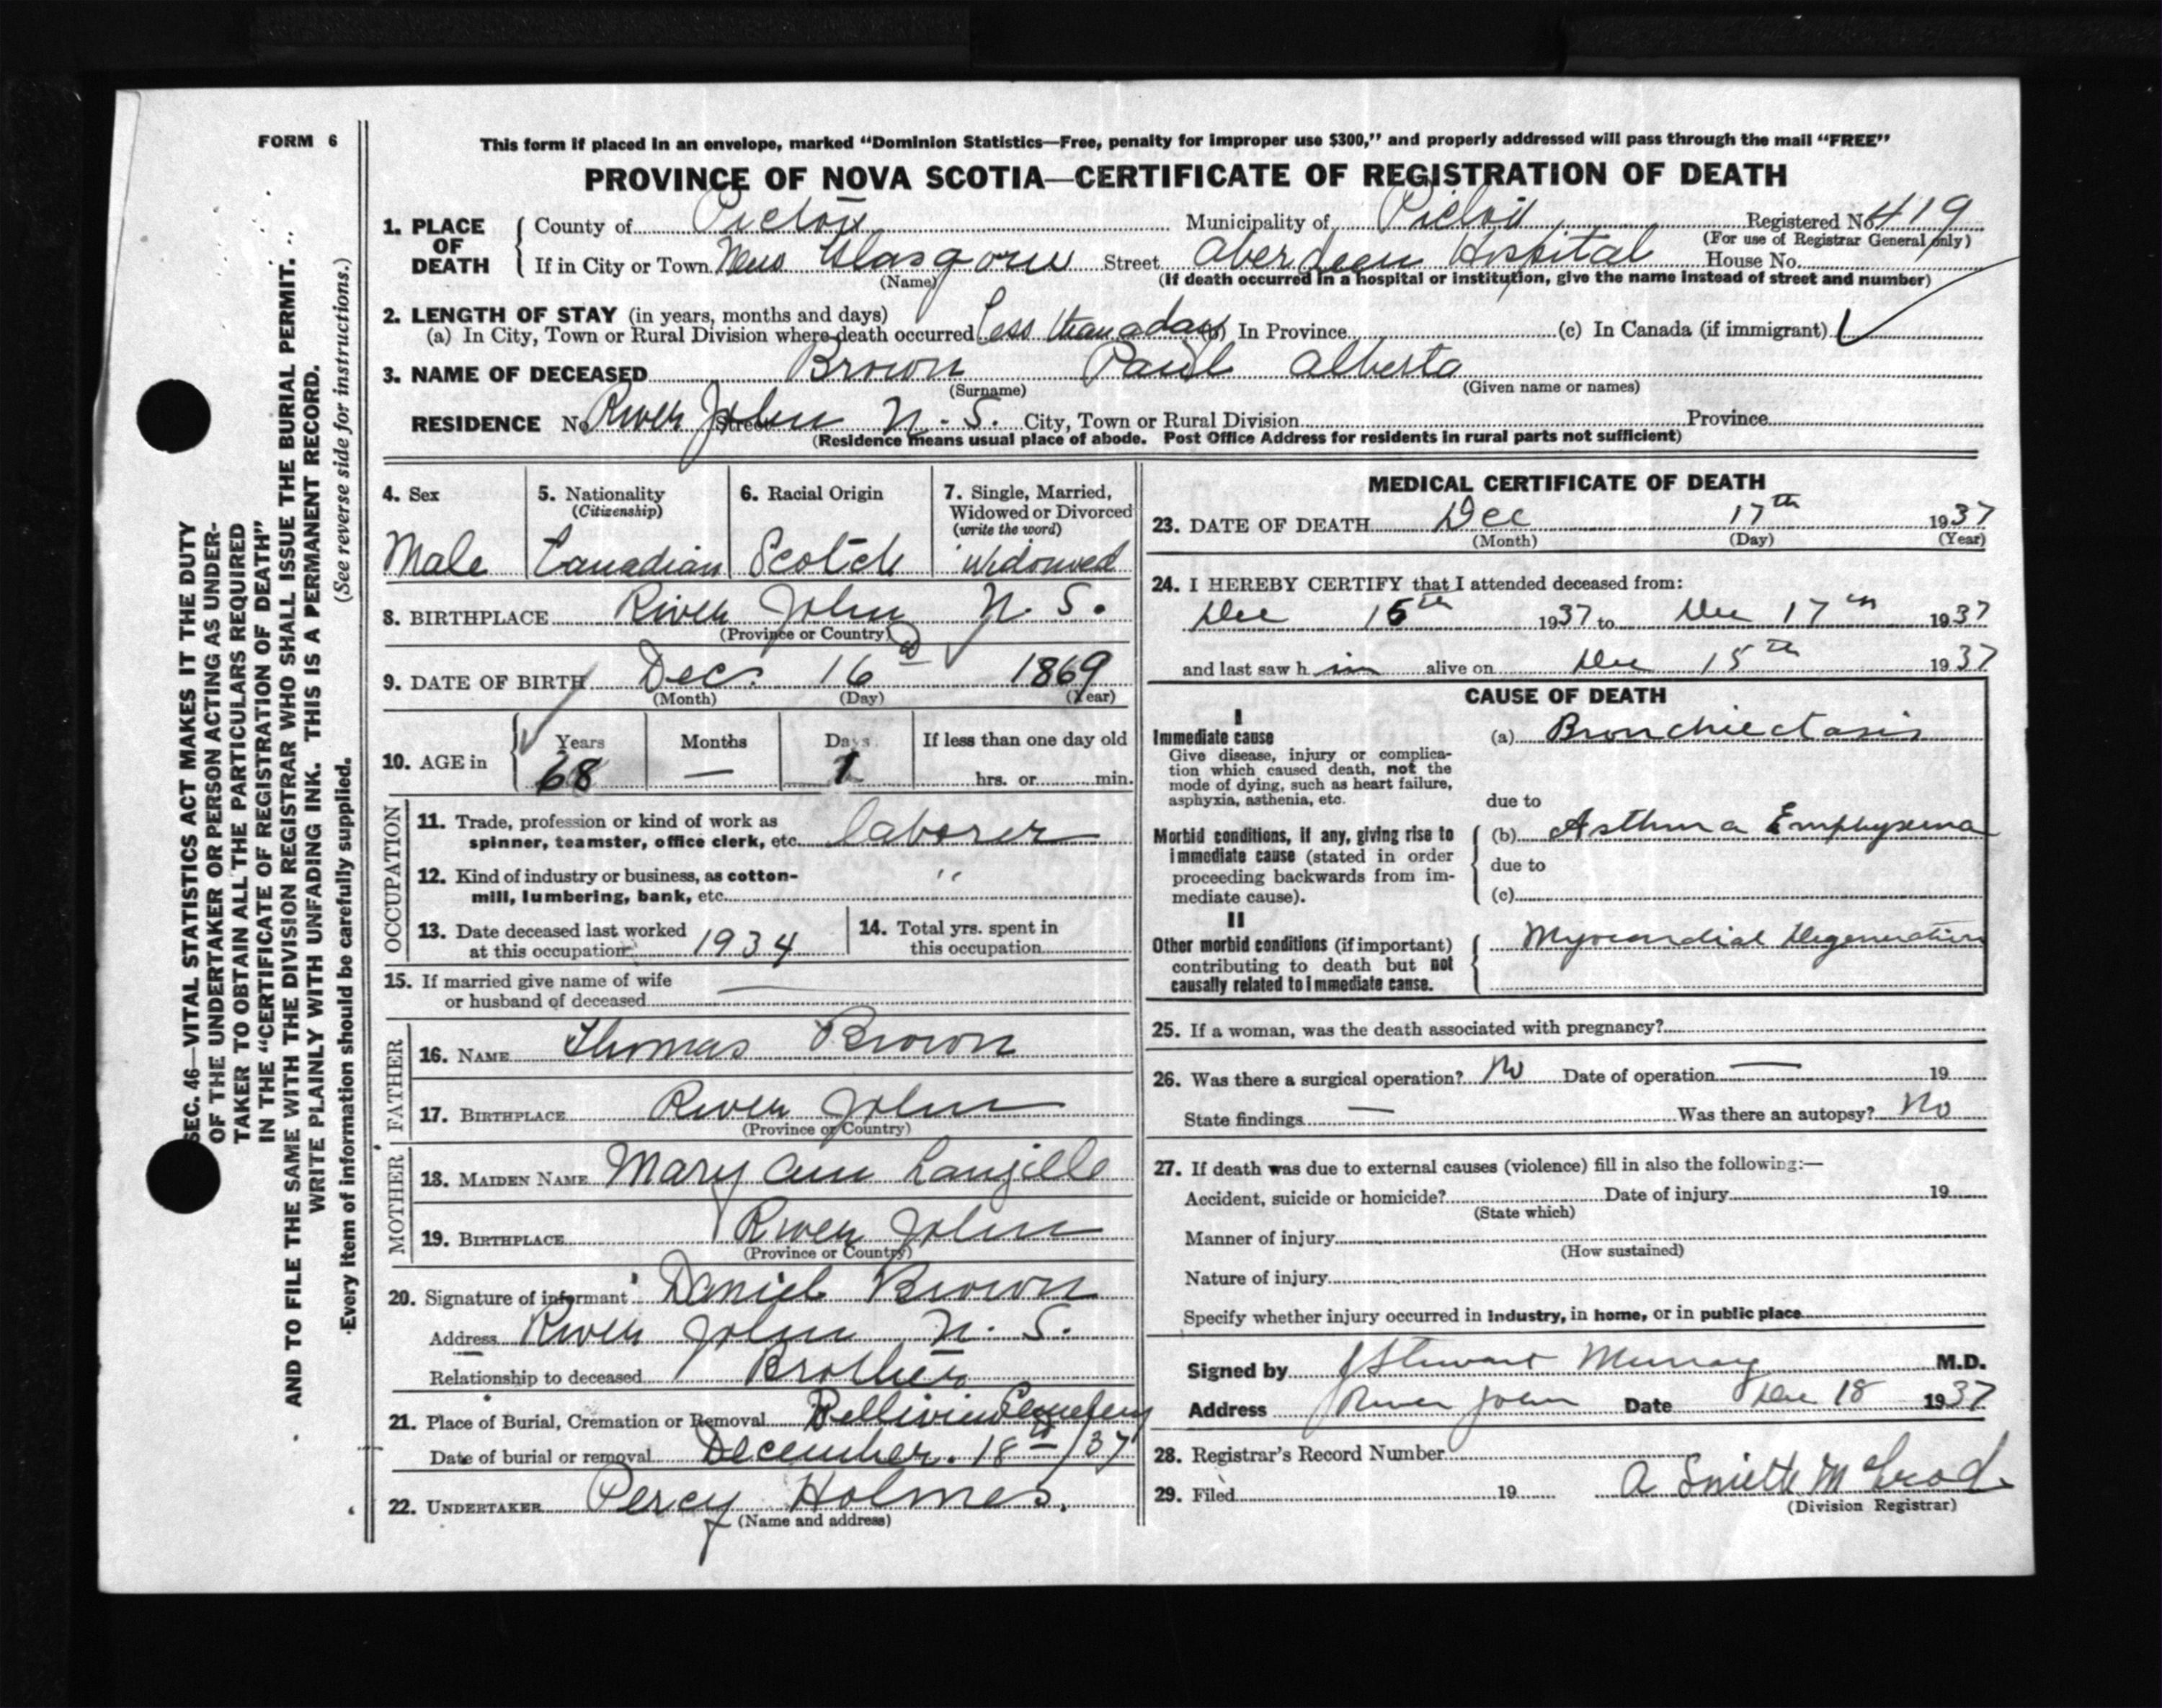 FORM 6
This form if placed in an envelope, marked "Dominion Statistics—Free, penalty for improper use $300," and properly addressed will pass through the mail "FREE"
PROVINCE OF NOVA SCOTIA—CERTIFICATE OF REGISTRATION OF DEATH
1. PLACE OF DEATH
County of Pictou Municipality of Pictou Registered No. 419
(For use of Registrar General only)
If in City or Town New Glasgow Street Aberdeen Hospital House No.
(Name) (If death occurred in a hospital or institution, give the name instead of street and number)
2. LENGTH OF STAY (in years, months and days)
(a) In City, Town or Rural Division where death occurred Less than a day (b) In Province (c) In Canada (if immigrant)
3. NAME OF DECEASED Brown Paul Alberto
(Surname) (Given name or names)
RESIDENCE No. River John N. S. Street City, Town or Rural Division Province
(Residence means usual place of abode. Post Office Address for residents in rural parts not sufficient)
4. Sex
Male
5. Nationality
(Citizenship)
Canadian
6. Racial Origin
Scotch
7. Single, Married,
Widowed or Divorced
(write the word)
Widowed
8. BIRTHPLACE River John N. S.
(Province or Country)
9. DATE OF BIRTH Dec. 16 1869
(Month) (Day) (Year)
10. AGE in
Years Months Days If less than one day old
68 — 1 hrs. or min.
OCCUPATION
11. Trade, profession or kind of work as
spinner, teamster, office clerk, etc. laborer
12. Kind of industry or business, as cotton-
mill, lumbering, bank, etc. "
13. Date deceased last worked
at this occupation 1934
14. Total yrs. spent in
this occupation
15. If married give name of wife
or husband of deceased —
FATHER
16. NAME Thomas Brown
17. BIRTHPLACE River John
(Province or Country)
MOTHER
18. MAIDEN NAME Mary Ann Langille
19. BIRTHPLACE River John
(Province or Country)
20. Signature of informant Daniel Brown
Address River John N. S.
Relationship to deceased Brother
21. Place of Burial, Cremation or Removal Cemetery
Date of burial or removal December. 18 /37
22. UNDERTAKER Percy Holmes.
(Name and address)
MEDICAL CERTIFICATE OF DEATH
23. DATE OF DEATH Dec 17th 1937
(Month) (Day) (Year)
24. I HEREBY CERTIFY that I attended deceased from:
Dec 15th 1937 to Dec 17th 1937
and last saw h im alive on Dec 15th 1937
CAUSE OF DEATH
I
Immediate cause
Give disease, injury or complica-
tion which caused death, not the
mode of dying, such as heart failure,
asphyxia, asthenia, etc.
(a) Bronchiectasis
due to
Morbid conditions, if any, giving rise to
immediate cause (stated in order
proceeding backwards from im-
mediate cause).
(b) Asthma Emphysema
due to
(c)
II
Other morbid conditions (if important)
contributing to death but not
causally related to immediate cause.
Myocardial Degeneration
25. If a woman, was the death associated with pregnancy?
26. Was there a surgical operation? No Date of operation — 19
State findings — Was there an autopsy? No
27. If death was due to external causes (violence) fill in also the following:—
Accident, suicide or homicide? Date of injury 19
(State which)
Manner of injury
(How sustained)
Nature of injury
Specify whether injury occurred in industry, in home, or in public place
Signed by J Stewart Murray M.D.
Address River John Date Dec 18 1937
28. Registrar's Record Number
29. Filed 19 A Smith McLeod
(Division Registrar)
SEC. 46—VITAL STATISTICS ACT MAKES IT THE DUTY
OF THE UNDERTAKER OR PERSON ACTING AS UNDER-
TAKER TO OBTAIN ALL THE PARTICULARS REQUIRED
IN THE "CERTIFICATE OF REGISTRATION OF DEATH"
AND TO FILE THE SAME WITH THE DIVISION REGISTRAR WHO SHALL ISSUE THE BURIAL PERMIT.
WRITE PLAINLY WITH UNFADING INK. THIS IS A PERMANENT RECORD.
Every item of information should be carefully supplied. (See reverse side for instructions.)